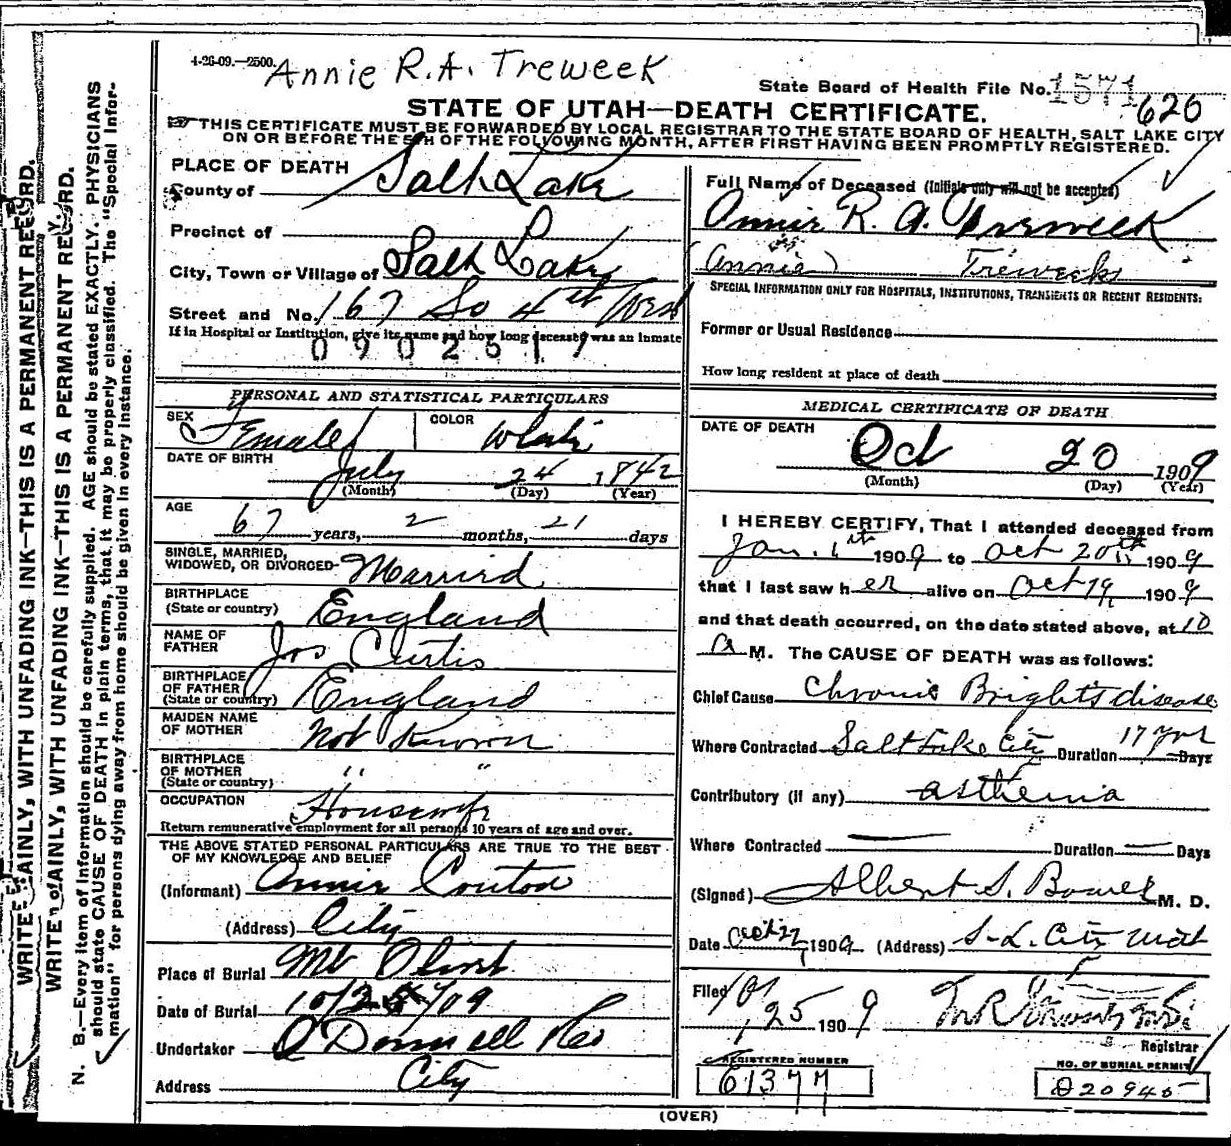 4-26-09.—2500.
Annie R.A. Treweek
State Board of Health File No. 1571 620
STATE OF UTAH—DEATH CERTIFICATE.
THIS CERTIFICATE MUST BE FORWARDED BY LOCAL REGISTRAR TO THE STATE BOARD OF HEALTH, SALT LAKE CITY
ON OR BEFORE THE 5TH OF THE FOLLOWING MONTH, AFTER FIRST HAVING BEEN PROMPTLY REGISTERED.
PLACE OF DEATH
County of Salt Lake
Precinct of
City, Town or Village of Salt Lake
Street and No. 167 So 4th West
If in Hospital or Institution, give its name and how long deceased was an inmate
0902517
PERSONAL AND STATISTICAL PARTICULARS
SEX Female COLOR White
DATE OF BIRTH
July 24, 1842
(Month) (Day) (Year)
AGE
67 years, 2 months, 21 days
SINGLE, MARRIED,
WIDOWED, OR DIVORCED Married
BIRTHPLACE
(State or country) England
NAME OF
FATHER Jos Curtis
BIRTHPLACE
OF FATHER
(State or country) England
MAIDEN NAME
OF MOTHER Not Known
BIRTHPLACE
OF MOTHER
(State or country) " "
OCCUPATION Housewife
Return remunerative employment for all persons 10 years of age and over.
THE ABOVE STATED PERSONAL PARTICULARS ARE TRUE TO THE BEST
OF MY KNOWLEDGE AND BELIEF
(Informant) Annie
(Address) City
Place of Burial Mt Olivet
Date of Burial 10/ /09
Undertaker O'Donnell
Address City
Full Name of Deceased (Initials only will not be accepted)
Annie R. A. Treweek
(Annie) Treweeks
SPECIAL INFORMATION ONLY FOR HOSPITALS, INSTITUTIONS, TRANSIENTS OR RECENT RESIDENTS:
Former or Usual Residence
How long resident at place of death
MEDICAL CERTIFICATE OF DEATH
DATE OF DEATH
Oct 20 1909
(Month) (Day) (Year)
I HEREBY CERTIFY, That I attended deceased from
Jan. 1st 1909 to Oct 20th 1909
that I last saw her alive on Oct 19, 1909
and that death occurred, on the date stated above, at 10
A M. The CAUSE OF DEATH was as follows:
Chief Cause Chronic Bright's disease
Where Contracted Salt Lake City Duration 17 yrs Days
Contributory (if any) asthenia
Where Contracted Duration — Days
(Signed) Albert S. Bower M. D.
Date Oct 22, 1909 (Address) S-L. City Utah
Filed 10/25 1909
Registrar
REGISTERED NUMBER
NO. OF BURIAL PERMIT
61377
020945
(OVER)
WRITE PLAINLY, WITH UNFADING INK—THIS IS A PERMANENT RECORD.
WRITE PLAINLY, WITH UNFADING INK—THIS IS A PERMANENT RECORD.
N. B.—Every item of information should be carefully supplied. AGE should be stated EXACTLY. PHYSICIANS
should state CAUSE OF DEATH in plain terms, that it may be properly classified. The "Special Infor-
mation" for persons dying away from home should be given in every instance.